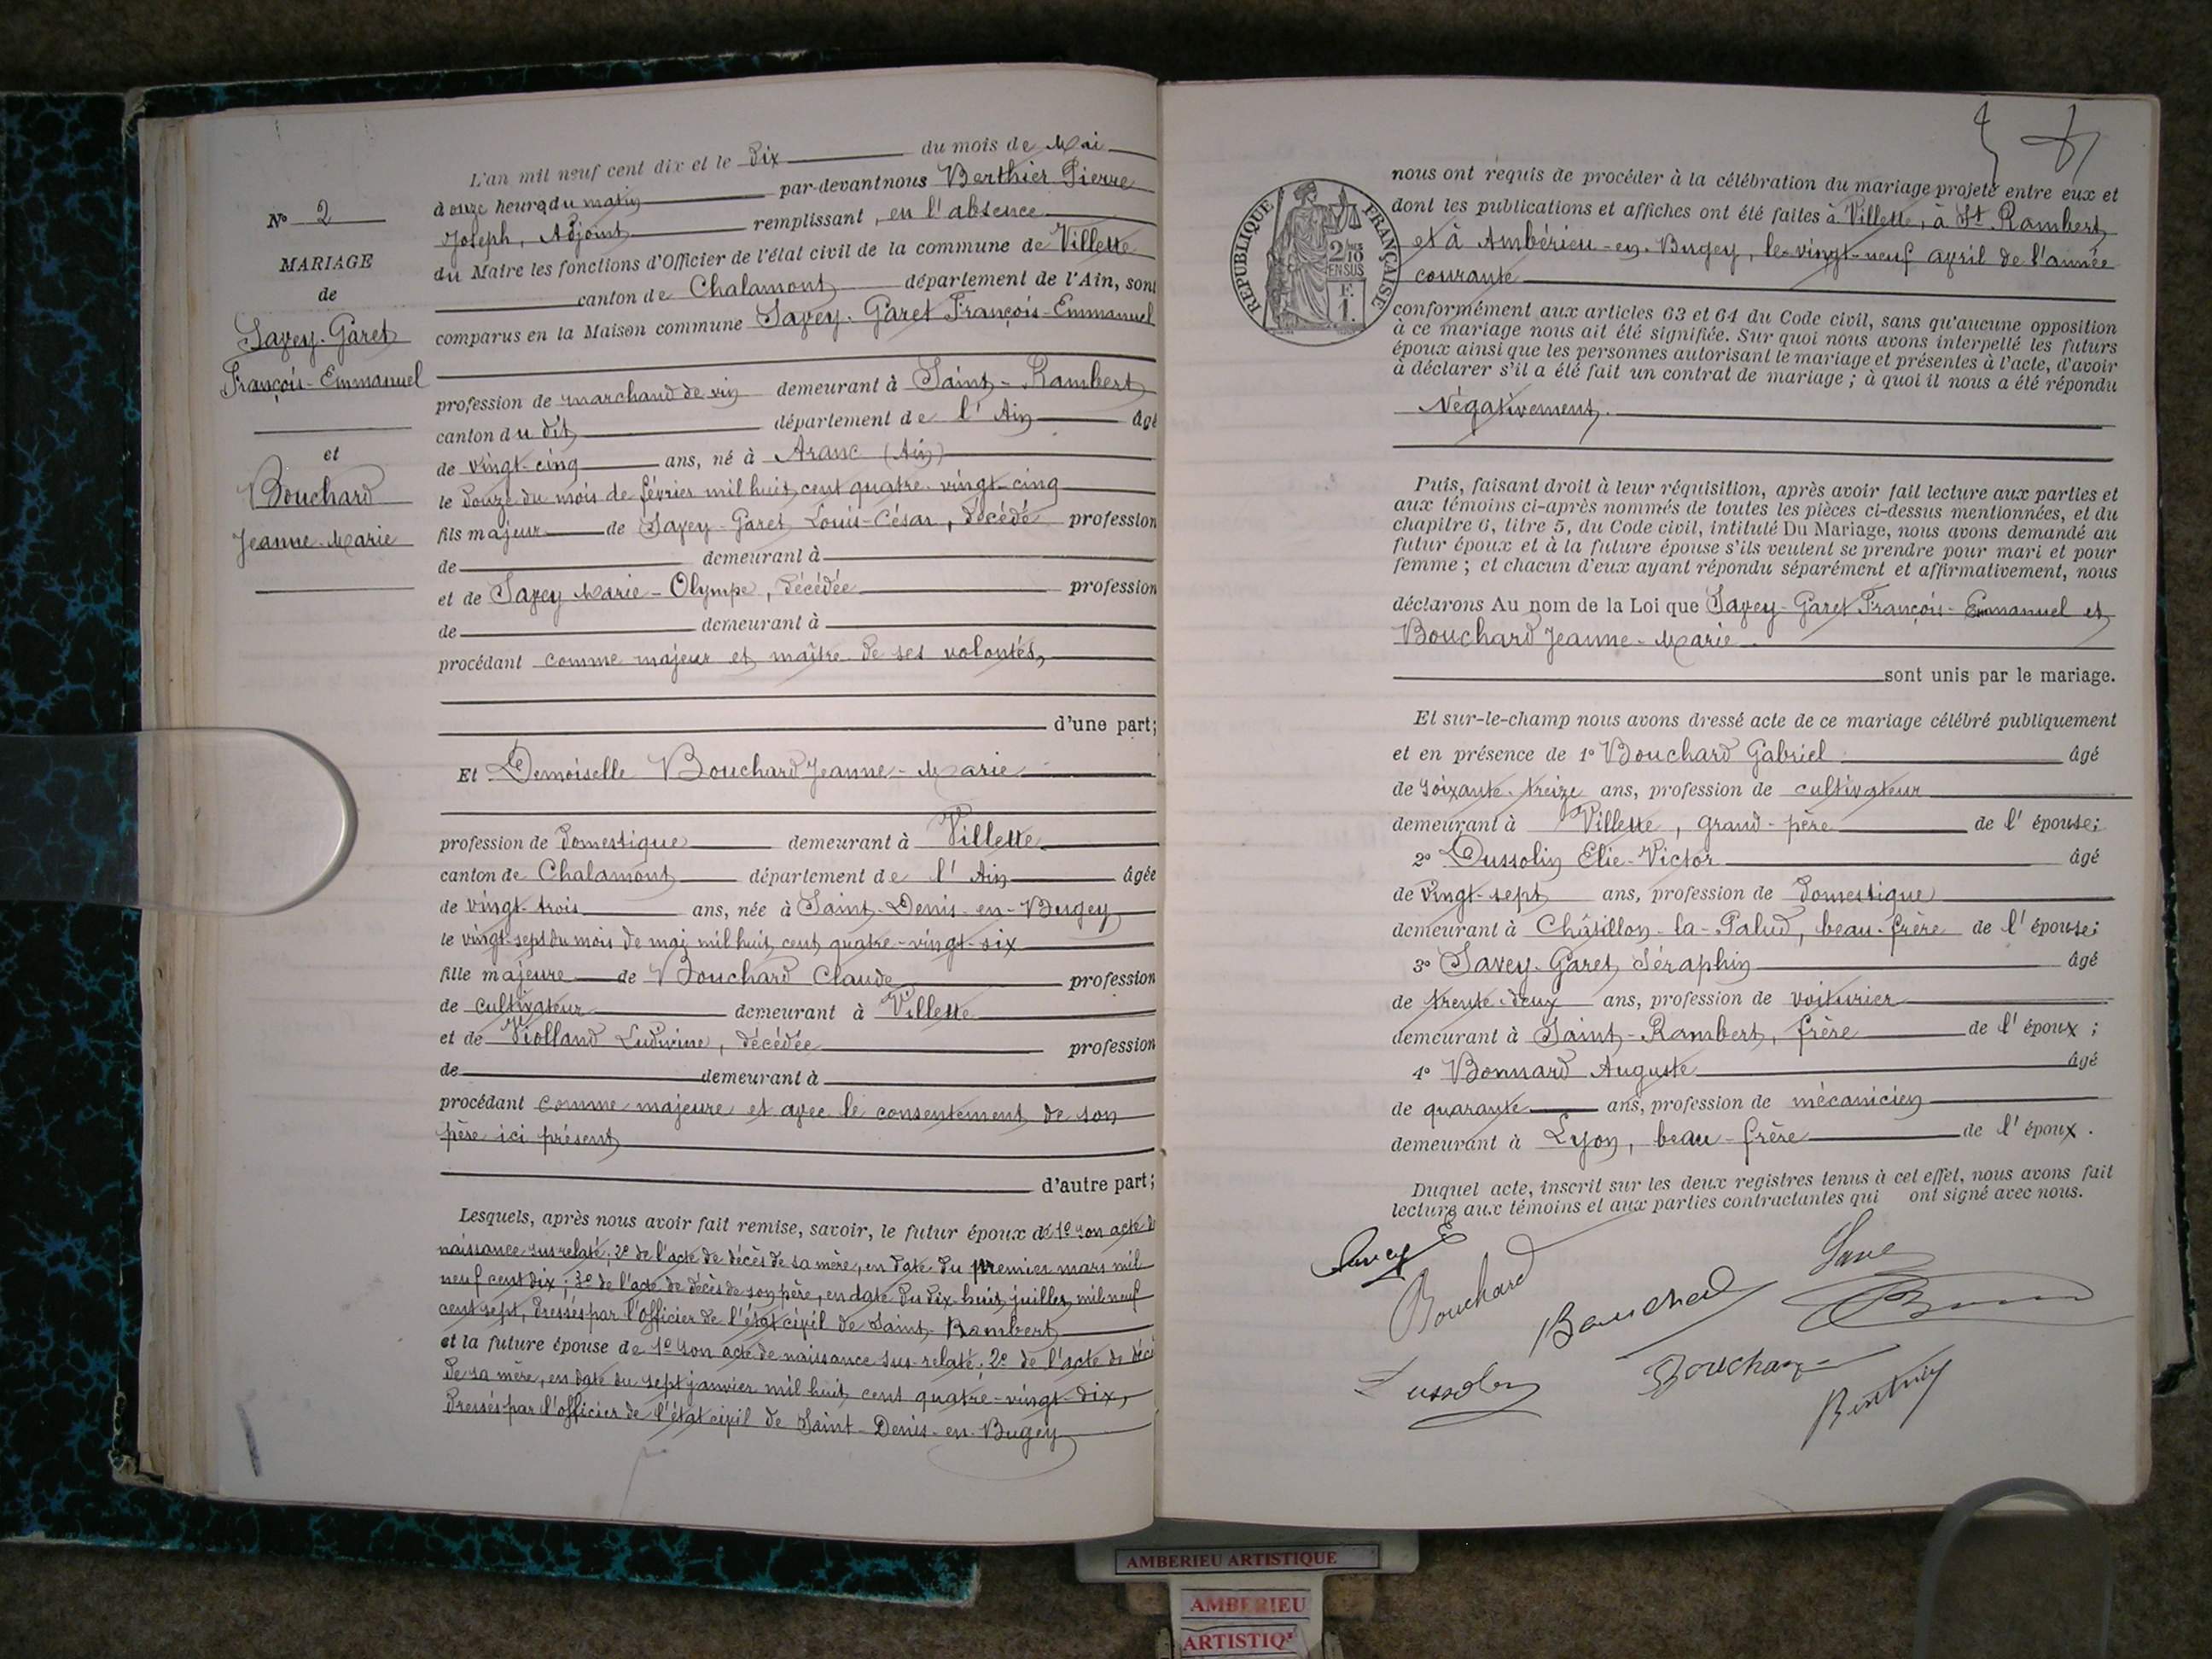 N° 2
MARIAGE
de
Savey-Garet
François-Emmanuel
et
Bouchard
Jeanne-Marie
L'an mil neuf cent dix et le dix du mois de Mai
à onze heures du matin par-devant nous Berthier Pierre
Joseph, Adjoint remplissant, en l'absence
du Maire les fonctions d'Officier de l'état civil de la commune de Villette
canton de Chalamont département de l'Ain, sont
comparus en la Maison commune Savey-Garet François-Emmanuel
profession de marchand de vin demeurant à Saint-Rambert
canton du dit département de l'Ain âgé
de vingt-cinq ans, né à Aranc (Ain)
le douze du mois de février mil huit cent quatre-vingt-cinq
fils majeur de Savey-Garet Louis-César, décédé profession
de demeurant à
et de Savey Marie-Olympe, décédée profession
de demeurant à
procédant comme majeur et maître de ses volontés,
d'une part;
Et Demoiselle Bouchard Jeanne-Marie
profession de domestique demeurant à Villette
canton de Chalamont département de l'Ain âgée
de vingt-trois ans, née à Saint-Denis-en-Bugey
le vingt-sept du mois de mai mil huit cent quatre-vingt-six
fille majeure de Bouchard Claude profession
de cultivateur demeurant à Villette
et de Violland Ludivine, décédée profession
de demeurant à
procédant comme majeure et avec le consentement de son
père ici présent
d'autre part;
Lesquels, après nous avoir fait remise, savoir, le futur époux de 1° son acte de
naissance susrelaté; 2° de l'acte de décès de sa mère, en date du premier mars mil
neuf cent dix; 3° de l'acte de décès de son père, en date du dix-huit juillet mil neuf
cent sept, dressés par l'officier de l'état civil de Saint-Rambert
et la future épouse de 1° son acte de naissance sus-relaté; 2° de l'acte de décè
de sa mère, en date du sept janvier mil huit cent quatre-vingt-dix,
dressés par l'officier de l'état civil de Saint-Denis-en-Bugey
REPUBLIQUE FRANÇAISE
2/10
EN SUS
F.
1.
nous ont requis de procéder à la célébration du mariage projeté entre eux et
dont les publications et affiches ont été faites à Villette, à St Rambert
et à Ambérieu-en-Bugey, le vingt-neuf avril de l'année
courante
conformément aux articles 63 et 64 du Code civil, sans qu'aucune opposition
à ce mariage nous ait été signifiée. Sur quoi nous avons interpellé les futurs
époux ainsi que les personnes autorisant le mariage et présentes à l'acte, d'avoir
à déclarer s'il a été fait un contrat de mariage; à quoi il nous a été répondu
Négativement.
Puis, faisant droit à leur réquisition, après avoir fait lecture aux parties et
aux témoins ci-après nommés de toutes les pièces ci-dessus mentionnées, et du
chapitre 6, titre 5, du Code civil, intitulé Du Mariage, nous avons demandé au
futur époux et à la future épouse s'ils veulent se prendre pour mari et pour
femme; et chacun d'eux ayant répondu séparément et affirmativement, nous
déclarons Au nom de la Loi que Savey-Garet François-Emmanuel et
Bouchard Jeanne-Marie
sont unis par le mariage.
Et sur-le-champ nous avons dressé acte de ce mariage célébré publiquement
et en présence de 1° Bouchard Gabriel âgé
de soixante-treize ans, profession de cultivateur
demeurant à Villette, grand-père de l'épouse;
2° Dussolin Elie-Victor âgé
de vingt-sept ans, profession de domestique
demeurant à Châtillon-la-Palud, beau-frère de l'épouse;
3° Savey-Garet Séraphin âgé
de trente-deux ans, profession de voiturier
demeurant à Saint-Rambert, frère de l'époux;
4° Bonnard Auguste âgé
de quarante ans, profession de mécanicien
demeurant à Lyon, beau-frère de l'époux.
Duquel acte, inscrit sur les deux registres tenus à cet effet, nous avons fait
lecture aux témoins et aux parties contractantes qui ont signé avec nous.
Savey
Bouchard
Bouchard
Dussolin
Bouchard
Berthier
AMBERIEU ARTISTIQUE
AMBERIEU
ARTISTIQ